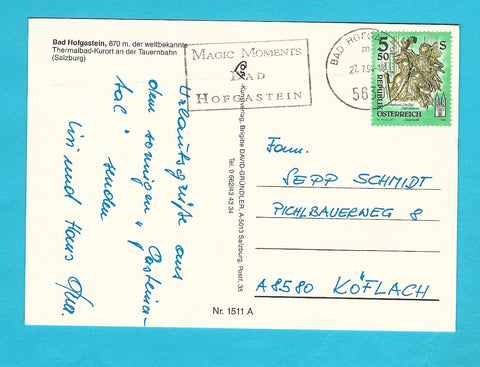 Bad Hofgastein, 870 m, der weltbekannte
Thermalbad-Kurort an der Tauernbahn
(Salzburg)
MAGIC MOMENTS
BAD
HOFGASTEIN
BAD HOFGA
5630
5 50 S
REPUBLIK
ÖSTERREICH
Urlaubsgrüße aus
dem sonnigen „Gasteina-
tal" senden
und Hans
Kunstverlag, Brigitte DAVID-GRÜNDLER, A-5013 Salzburg, Postf. 35
Tel. 0 662/43 43 34
Fam.
SEPP SCHMIDT
PICHLBAUERWEG 8
A 8580 KÖFLACH
Nr. 1511 A